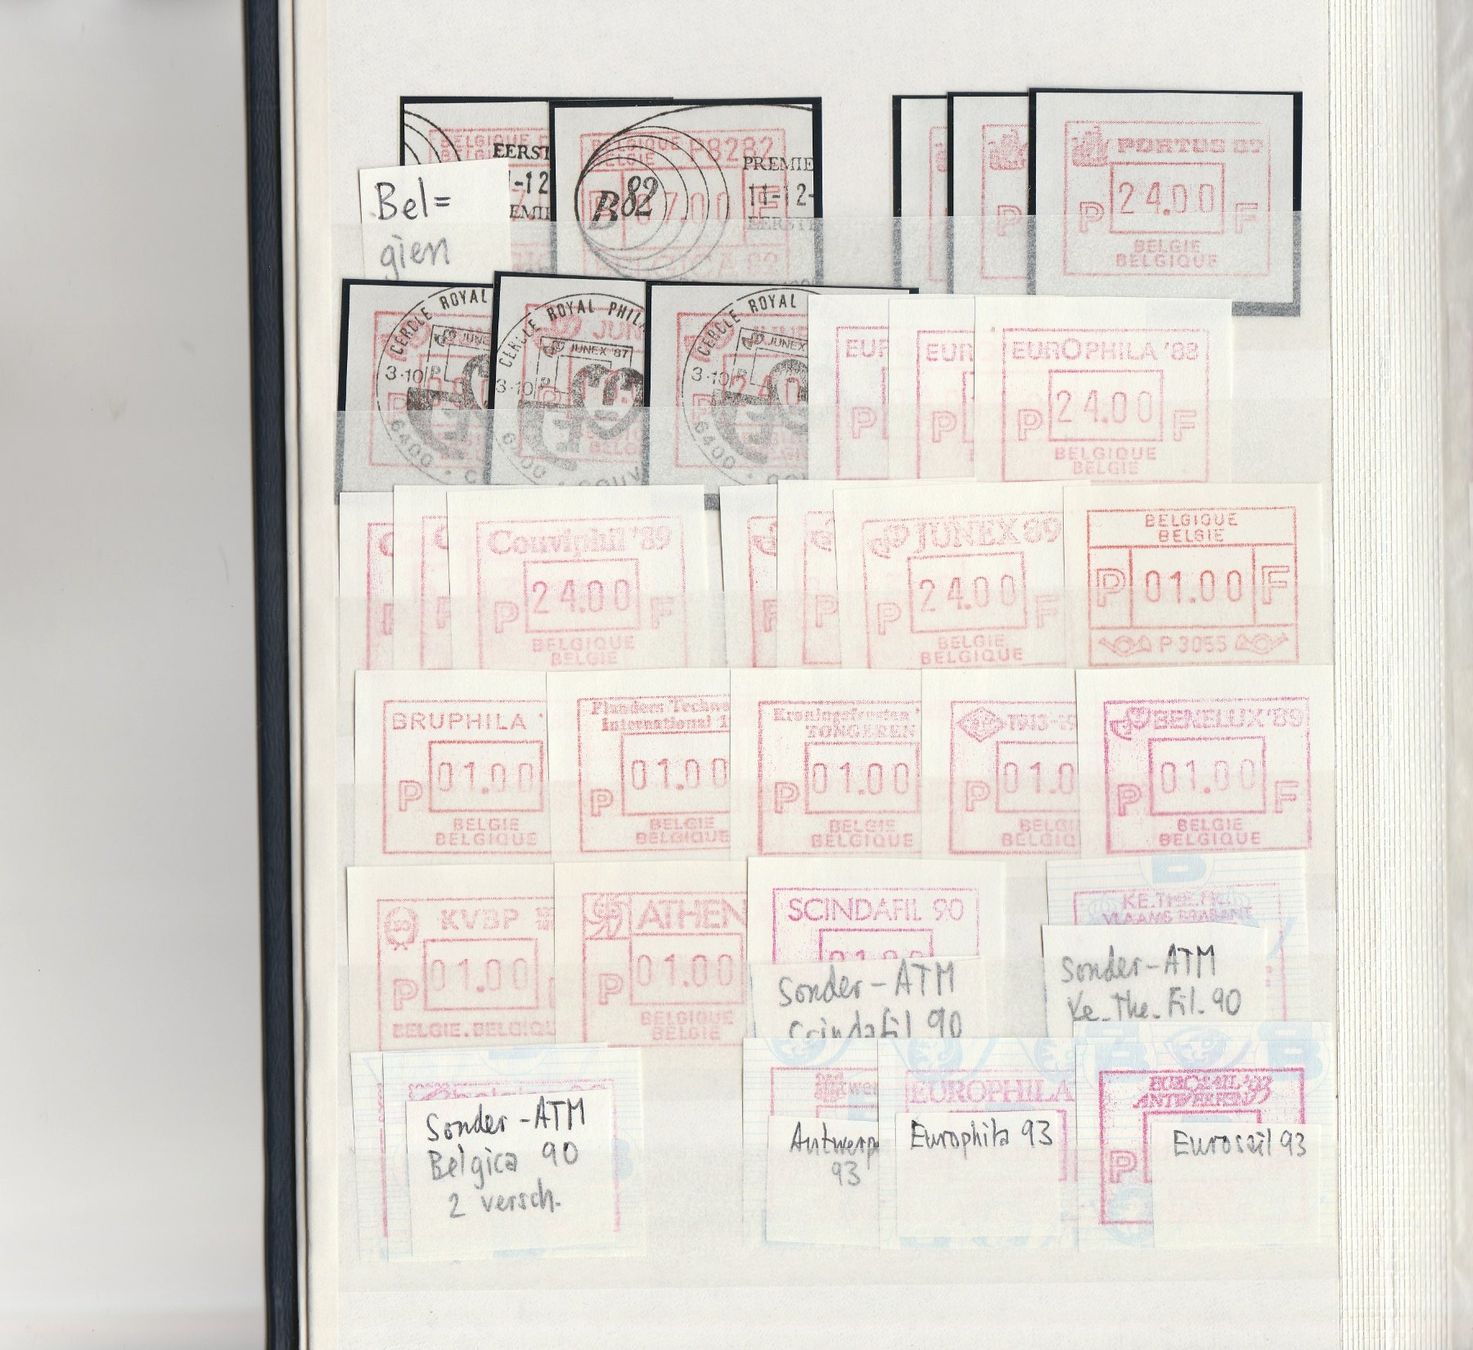 Bel=
gien
BELGIQUE P
BELGI
EERST
-12
BELGIQUE P8282
BELGIE
B82
07.00 F
PREMIE
11-12-
EERST
BELGICA 82
P
P
PORTUS 87
P 24.00 F
BELGIE
BELGIQUE
CERCLE ROYAL
JUNE
3-10
6400
CERCLE ROYAL PHIL
JUN
JUNEX '87
3-10
6400
CERCLE ROYAL
JUNEX
3-10
24.0
6400
EUF
P
EUR
P
EUROPHILA '88
P 24.00 F
BELGIQUE
BELGIE
Couviphil '89
P 24.00 F
BELGIQUE
BELGIE
P
P
JUNEX 89
P 24.00 F
BELGIE
BELGIQUE
BELGIQUE
BELGIE
P 01.00 F
P3055
BRUPHILA '
P 01.00
BELGIE
BELGIQUE
Flanders Techno
International 1
P 01.00
BELGIE
BELGIQUE
Kroningsfeesten '
TONGEREN
P 01.00
BELGIE
BELGIQUE
1913-19
P 01.0
BELGI
BELGIQ
BENELUX '89
P 01.00 F
BELGIE
BELGIQUE
KVBP
P 01.00
BELGIE.BELGIQU
ATHEN
P 01.00
BELGIQUE
BELGIE
SCINDAFIL 90
01.00
Sonder-ATM
Scindafil 90
B
KE.THE.FIL
VLAAMS BRABANT
Sonder-ATM
Ke.The.Fil.90
Sonder-ATM
Belgica 90
2 versch.
Antwer
Antwerp
93
EUROPHILA
Europhila 93
EUROSAIL '93
ANTWERPEN
P
Eurosail 93